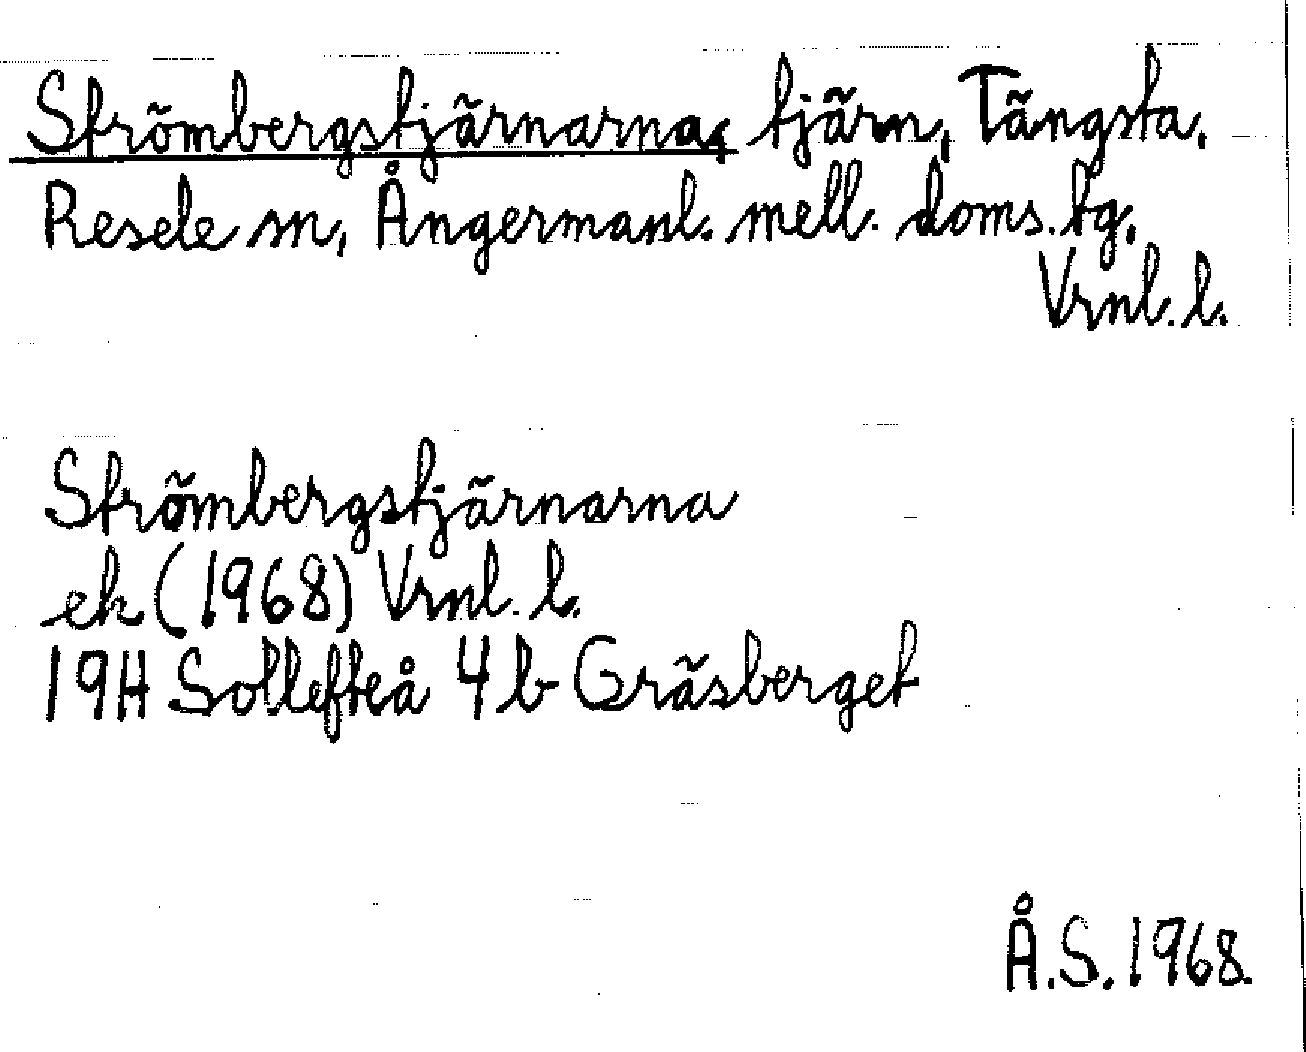 Strömbergstjärnarna, tjärn, Tängsta,
Resele sn, Ångermanl. mell. doms. tg,
Vrnl. l.
Strömbergstjärnarna
ek (1968) Vrnl. l.
19H Sollefteå 4 b Gräsberget
Å.S. 1968.